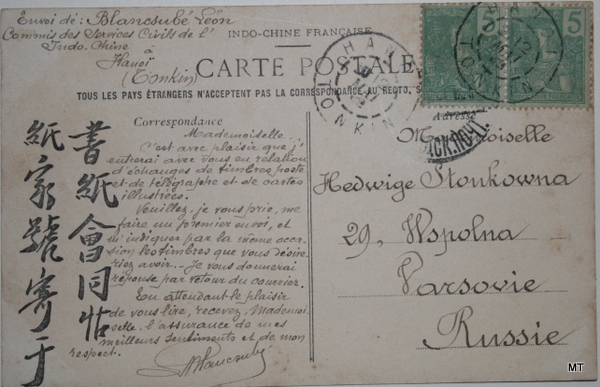 Envoi de: Blancsubé Léon
Commis des Services Civils de l'
Indo-Chine
à
Hanoï
(Tonkin)
INDO-CHINE FRANÇAISE
CARTE POSTALE
TOUS LES PAYS ÉTRANGERS N'ACCEPTENT PAS LA CORRESPONDANCE AU RECTO, S
Correspondance
Mademoiselle.
C'est avec plaisir que j'
entrerai avec vous en relation
d'échanges de timbres poste
et de télégraphe et de cartes
illustrées.
Veuillez, je vous prie, me
faire un premier envoi, et
m'indiquer par la même occa-
sion les timbres que vous désire-
riez avoir. Je vous donnerai
réponse par retour du courrier.
En attendant le plaisir
de vous lire, recevez, Mademoi-
selle, l'assurance de mes
meilleurs sentiments et de mon
respect.
LBlancsubé
書紙會同帖
紙家號寄于
5
5
HANOI
TONKIN
HANOI
TONKIN
Adresse
Mademoiselle
Hedwige Stonkowna
29, Wspolna
Varsovie
Russie
MT